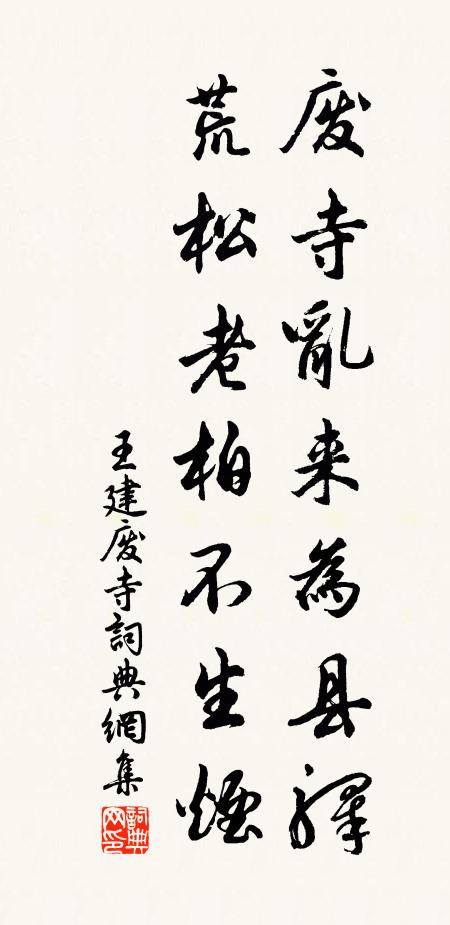 废寺亂来為县驛
荒松老柏不生煙
王建废寺詞典網集
詞典网印